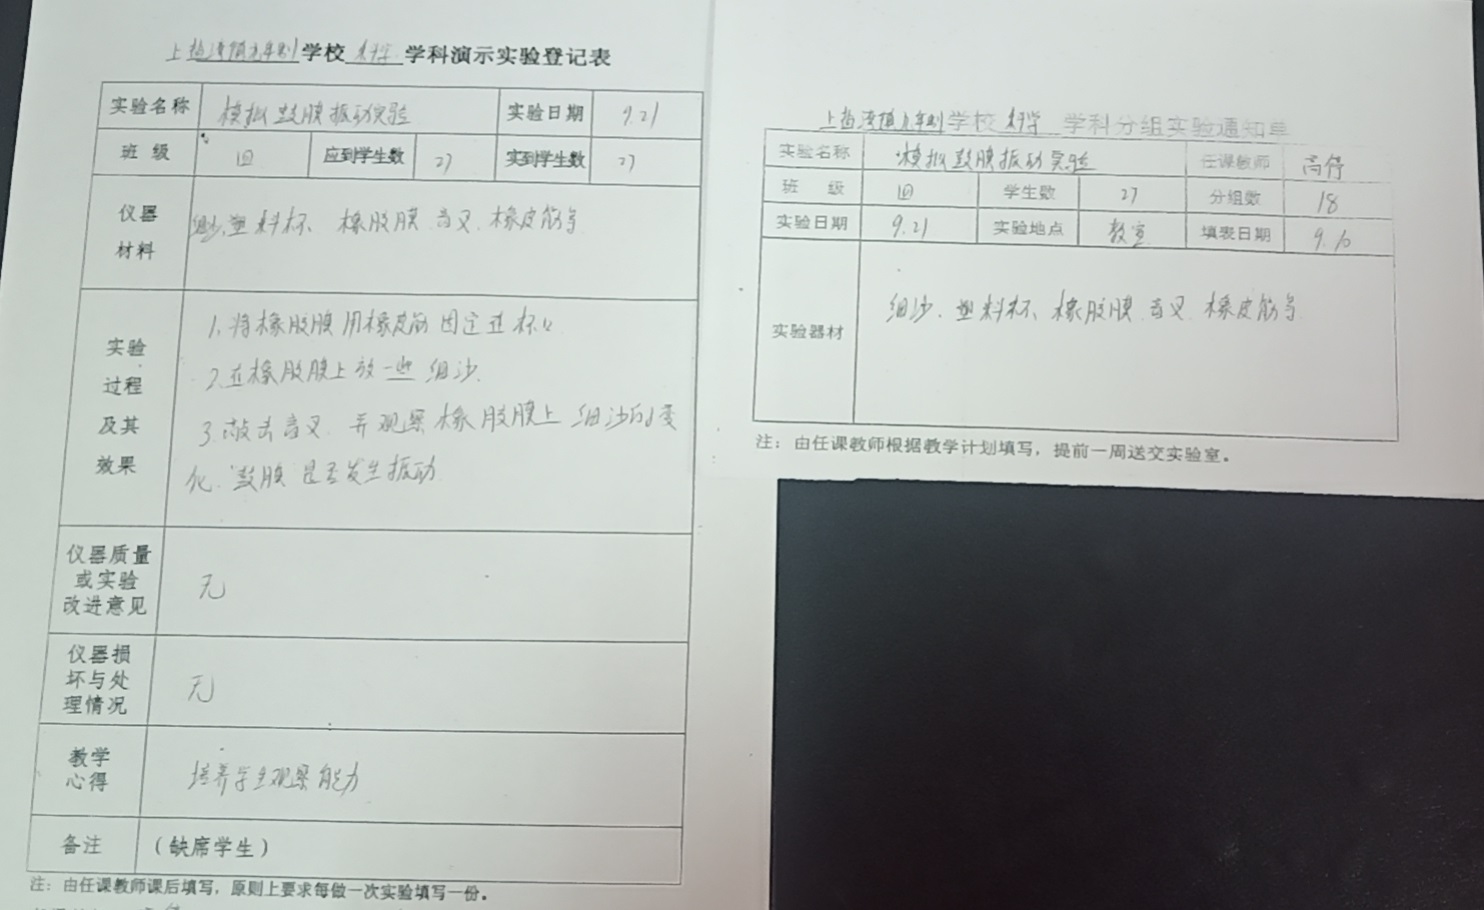 学校 科学 学科演示实验登记表
实验名称 模拟鼓膜振动实验 实验日期 9.21
班 级 四 应到学生数 27 实到学生数 27
仪器材料 细沙、塑料杯、橡胶膜、音叉、橡皮筋等
实验过程及其效果
1、将橡胶膜用橡皮筋固定在杯口
2、在橡胶膜上放一些细沙.
3、敲击音叉、并观察橡胶膜上细沙的变
化、鼓膜是否发生振动.
仪器质量或实验改进意见 无
仪器损坏与处理情况 无
教学心得 培养学生观察能力
备注 （缺席学生）
注：由任课教师课后填写，原则上要求每做一次实验填写一份。
学校 科学 学科分组实验通知单
实验名称 模拟鼓膜振动实验 任课教师
班 级 四 学生数 27 分组数 18
实验日期 9.21 实验地点 教室 填表日期 9.10
实验器材 细沙、塑料杯、橡胶膜、音叉、橡皮筋等
注：由任课教师根据教学计划填写，提前一周送交实验室。